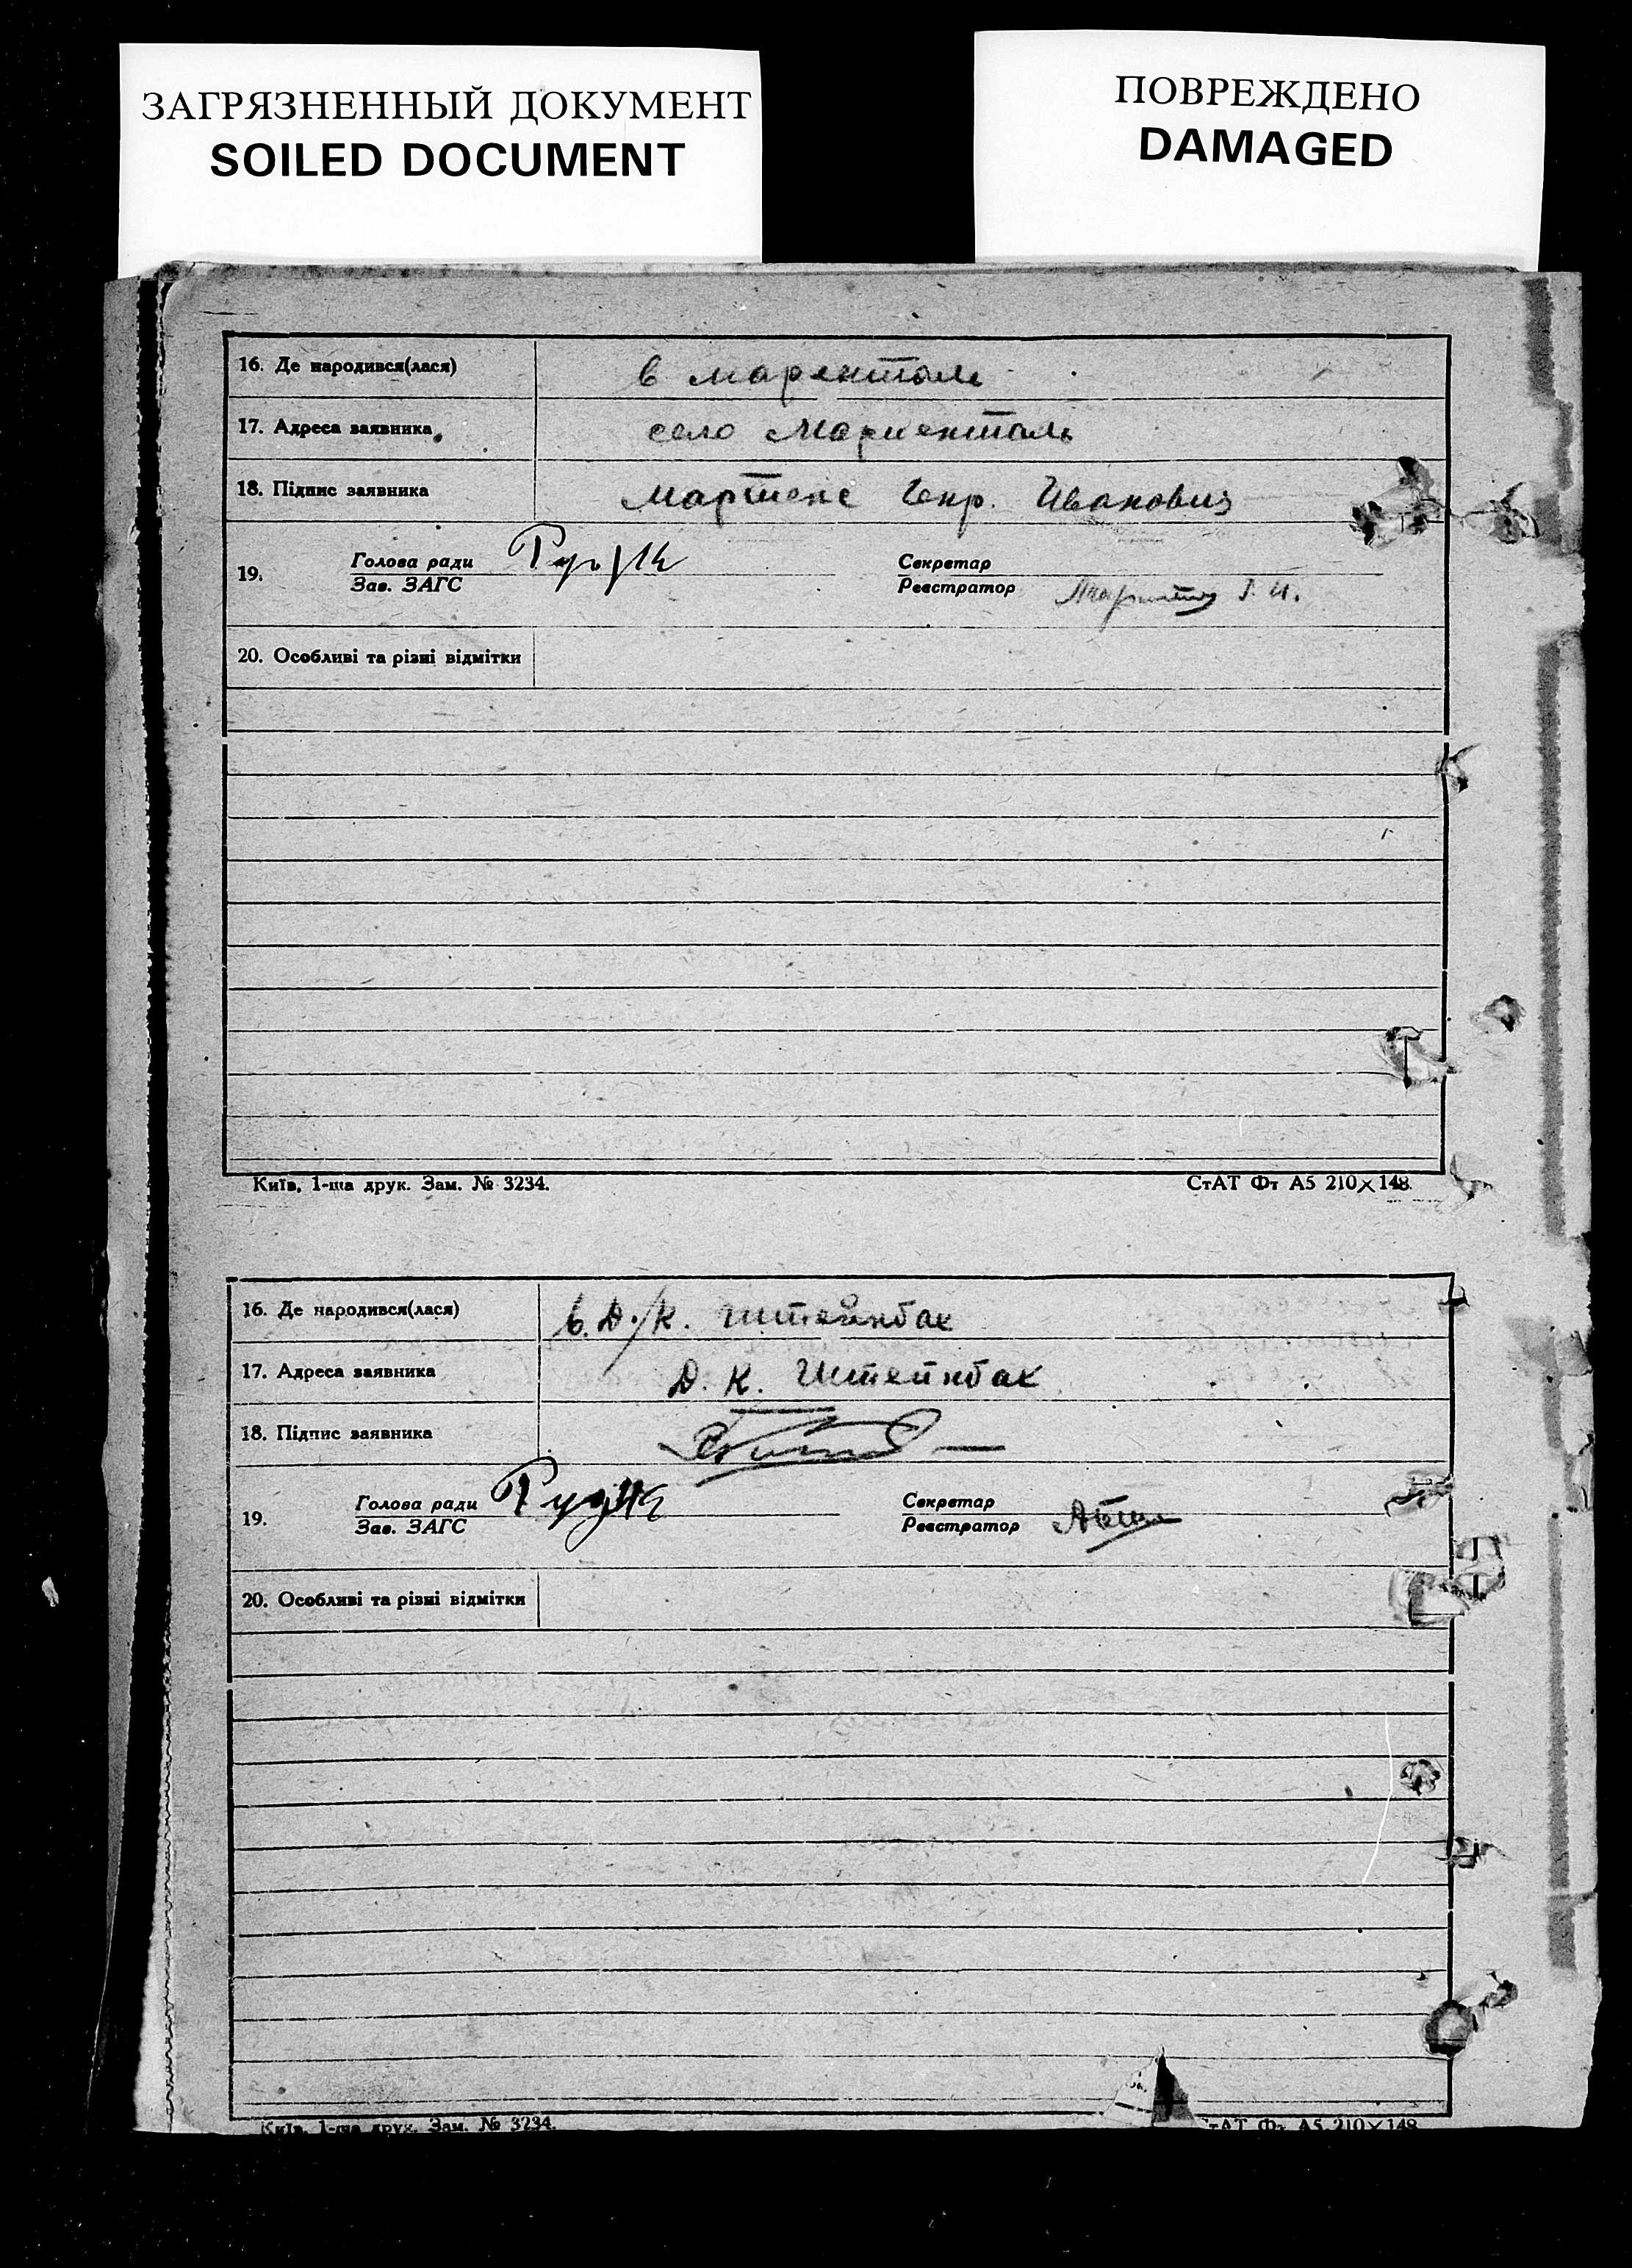 ЗАГРЯЗНЕННЫЙ ДОКУМЕНТ
SOILED DOCUMENT
ПОВРЕЖДЕНО
DAMAGED
16. Де народився(лася) в марентале
17. Адреса заявника село Мариенталь
18. Підпис заявника Мартенс Генр. Иванович
19. Голова ради
Зав. ЗАГС
Секретар
Реєстратор Г. И.
20. Особливі та різні відмітки
Київ, 1-ша друк. Зам. № 3234.
СтАТ Фт А5 210×148.
16. Де народився(лася) в. Д. К. Штейнбах
17. Адреса заявника Д. К. Штейнбах
18. Підпис заявника
19. Голова ради
Зав. ЗАГС
Секретар
Реєстратор
20. Особливі та різні відмітки
Київ, 1-ша друк. Зам. № 3234.
СтАТ Фт А5 210×148